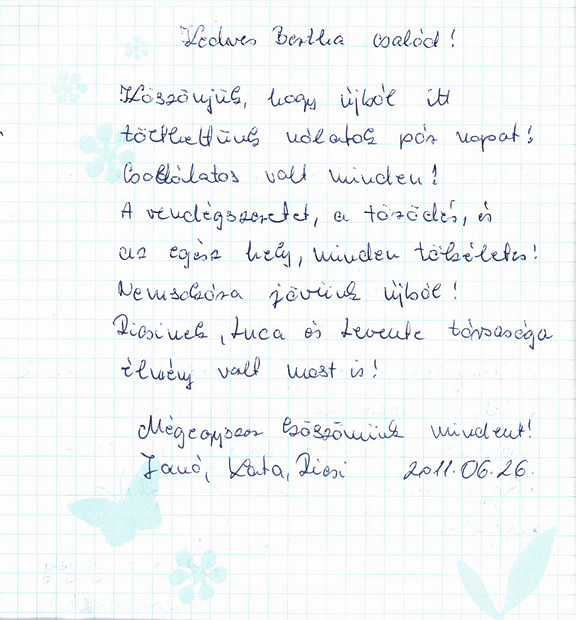 Kedves Bertha család!
Köszönjük, hogy újból itt
tölthettünk nálatok pár napot!
Csodálatos volt minden!
A vendégszeretet, a törődés, és
az egész hely, minden tökéletes!
Nemsokára jövünk újból!
Dicsinek, Luca és Levente társasága
élmény volt most is!
Mégegyszer köszönünk mindent!
Janó, Kata, Dicsi 2011.06.26.